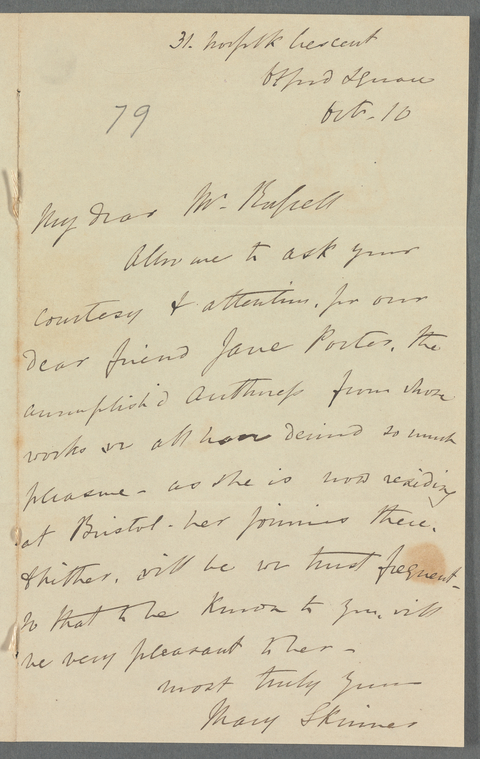 31. Norfolk Crescent
Oxford Square
Oct. 10
79
My dear Mr. Russell
Allow me to ask your
courtesy & attention, for our
dear friend Jane Porter, the
accomplish'd Authoress from whose
works we all have derived so much
pleasure - as she is now residing
at Bristol - her journies there,
& hither, will be we trust frequent -
so that to be known to you, will
be very pleasant to her -
most truly yours
Mary Skinner